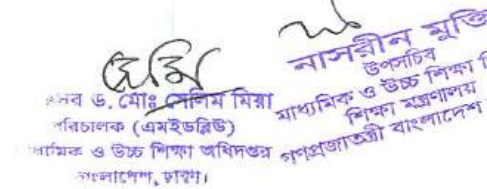 জনাব ড. মোঃ সেলিম মিয়া
পরিচালক (এমইডব্লিউ)
মাধ্যমিক ও উচ্চ শিক্ষা অধিদপ্তর
বাংলাদেশ, ঢাকা।
নাসরীন মুক্তি
উপসচিব
মাধ্যমিক ও উচ্চ শিক্ষা
শিক্ষা মন্ত্রণালয়
গণপ্রজাতন্ত্রী বাংলাদেশ